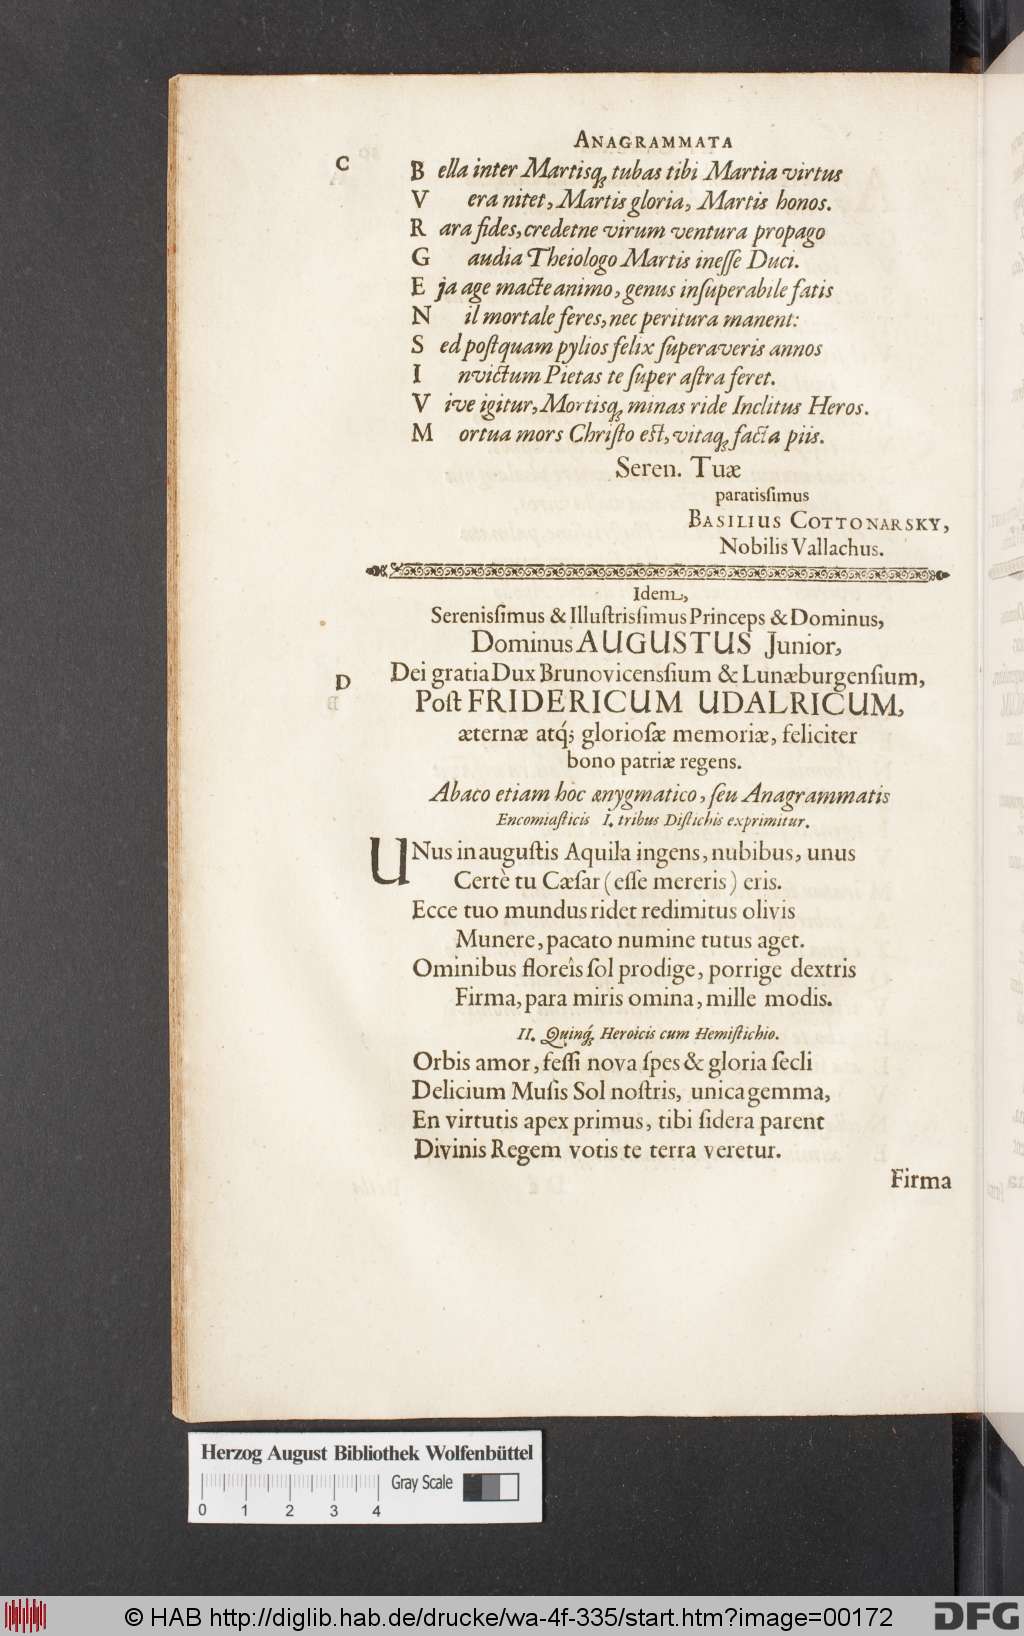 ANAGRAMMATA
C
B ella inter Martisq; tubas tibi Martia virtus
V era nitet, Martis gloria, Martis honos.
R ara fides, credetne virum ventura propago
G audia Theiologo Martis inesse Duci.
E ja age macte animo, genus insuperabile fatis
N il mortale feres, nec peritura manent:
S ed postquam pylios felix superaveris annos
I nvictum Pietas te super astra feret.
V ive igitur, Mortisq; minas ride Inclitus Heros.
M ortua mors Christo est, vitaq; facta piis.
Seren. Tuæ
paratissimus
BASILIUS COTTONARSKY,
Nobilis Vallachus.
Idem,
Serenissimus & Illustrissimus Princeps & Dominus,
Dominus AUGUSTUS Junior,
Dei gratia Dux Brunovicensium & Lunæburgensium,
D
Post FRIDERICUM UDALRICUM,
æternæ atq́; gloriosæ memoriæ, feliciter
bono patriæ regens.
Abaco etiam hoc ænygmatico, seu Anagrammatis
Encomiasticis I. tribus Distichis exprimitur.
UNus in augustis Aquila ingens, nubibus, unus
Certè tu Cæsar (esse mereris) eris.
Ecce tuo mundus ridet redimitus olivis
Munere, pacato numine tutus aget.
Ominibus floreîs sol prodige, porrige dextris
Firma, para miris omina, mille modis.
II. Quinq́; Heroicis cum Hemistichio.
Orbis amor, fessi nova spes & gloria secli
Delicium Musis Sol nostris, unica gemma,
En virtutis apex primus, tibi sidera parent
Divinis Regem votis te terra veretur.
Firma
Herzog August Bibliothek Wolfenbüttel
Gray Scale
0 1 2 3 4
© HAB http://diglib.hab.de/drucke/wa-4f-335/start.htm?image=00172
DFG